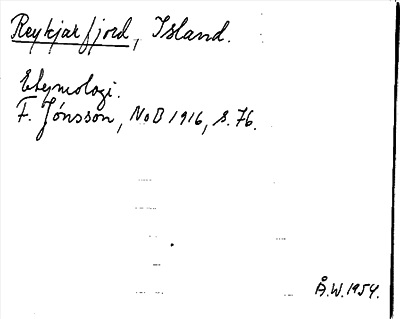 Reykjarfjord, Island.
Etymologi.
F. Jónsson, NoB 1916, s. 76.
Å.W. 1954.